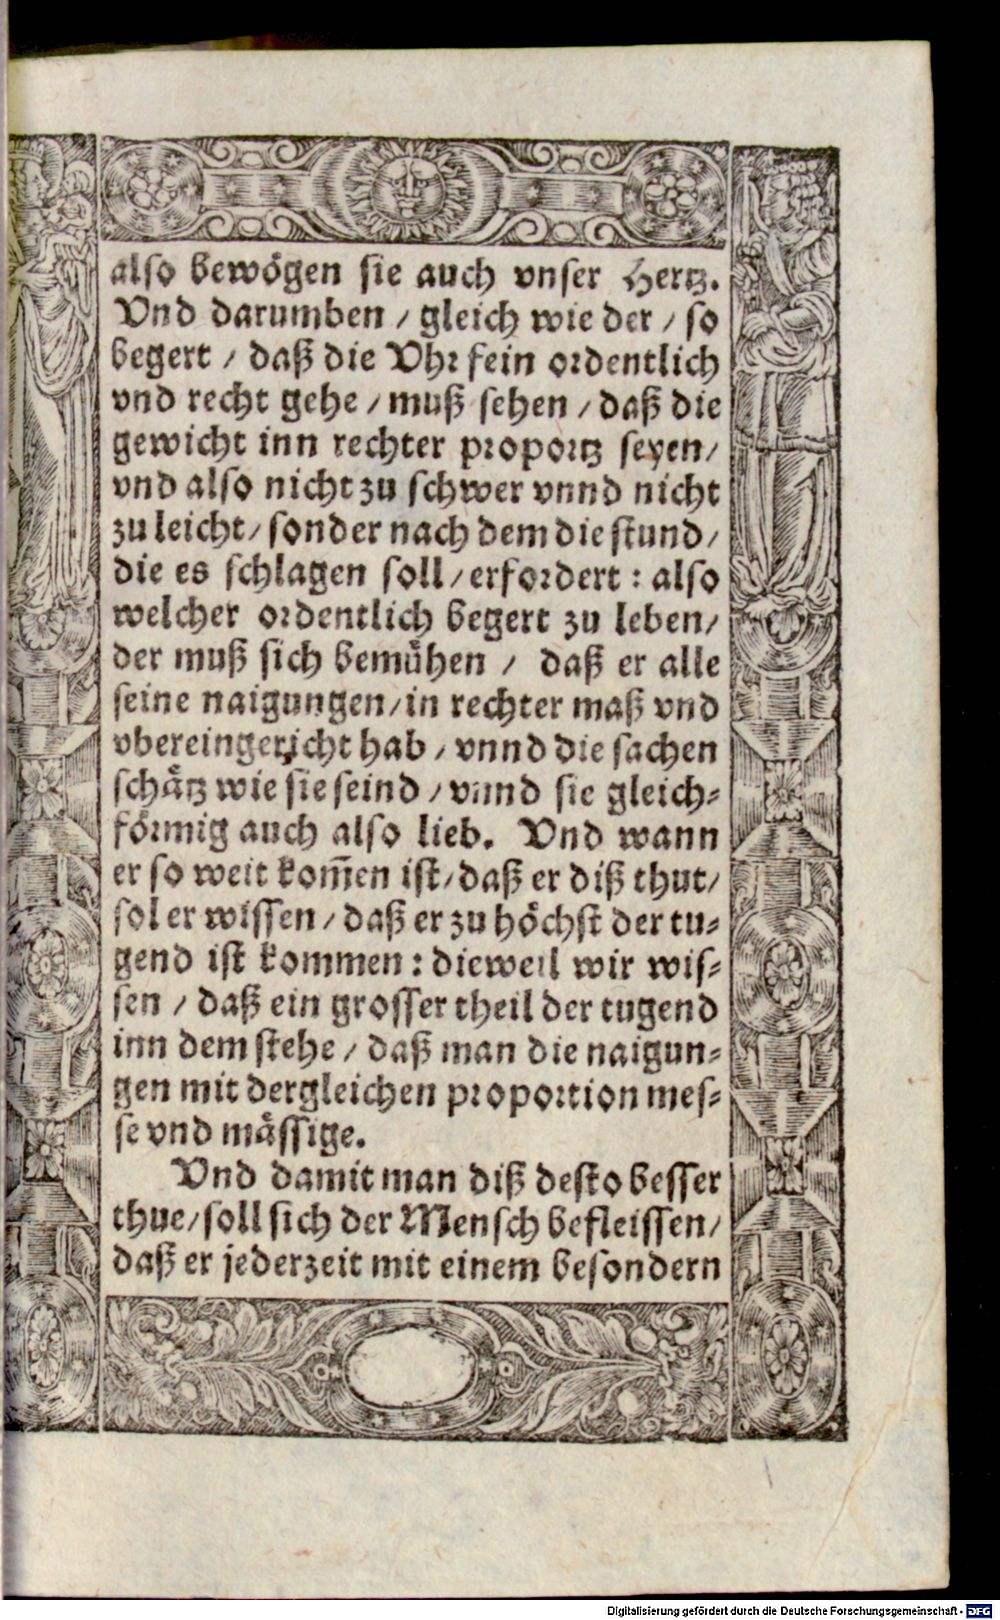 also bewögen sie auch vnser Hertz.
Vnd darumben / gleich wie der / so
begert / daß die Vhr fein ordentlich
vnd recht gehe / muß sehen / daß die
gewicht inn rechter proportz seyen /
vnd also nicht zu schwer vnnd nicht
zu leicht / sonder nach dem die stund /
die es schlagen soll / erfordert : also
welcher ordentlich begert zu leben /
der muß sich bemühen / daß er alle
seine naigungen / in rechter maß vnd
vbereingericht hab / vnnd die sachen
schätz wie sie seind / vnnd sie gleich-
förmig auch also lieb. Vnd wann
er so weit kom̃en ist / daß er diß thut /
sol er wissen / daß er zu höchst der tu-
gend ist kommen : dieweil wir wis-
sen / daß ein grosser theil der tugend
inn dem stehe / daß man die naigun-
gen mit dergleichen proportion mes-
se vnd mässige.
Vnd damit man diß desto besser
thue / soll sich der Mensch befleissen /
daß er jederzeit mit einem besondern
Digitalisierung gefördert durch die Deutsche Forschungsgemeinschaft - DFG